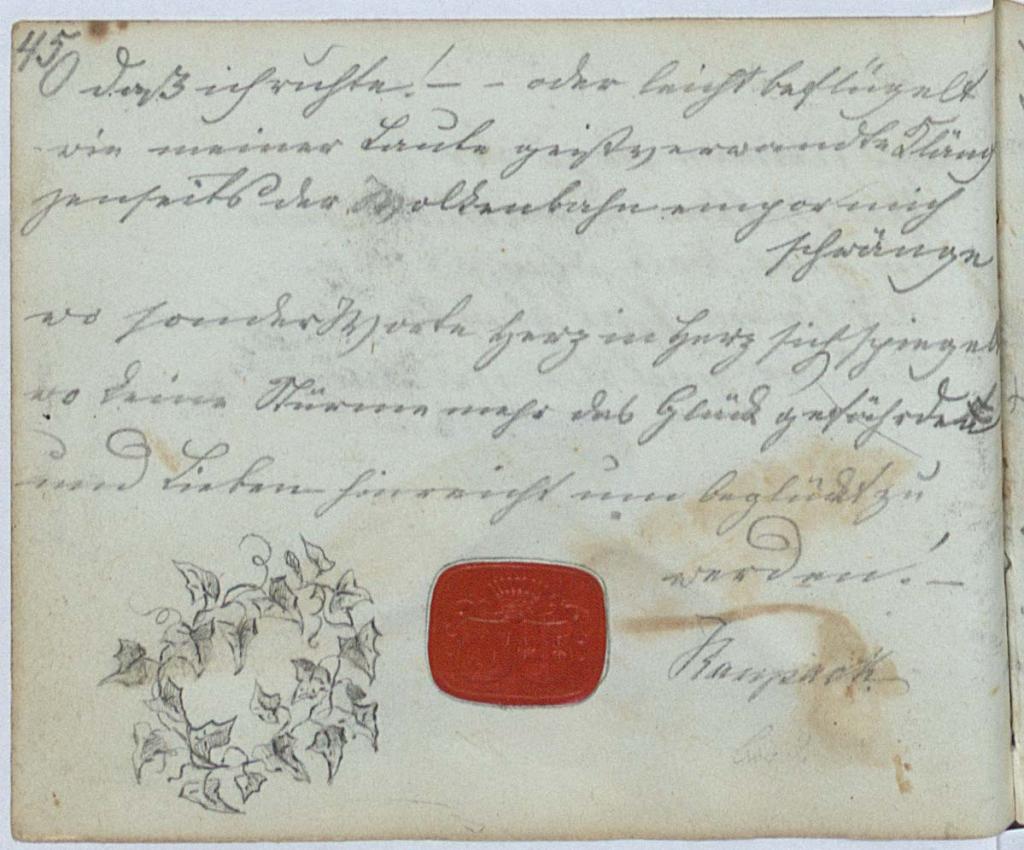 45
O daß ich ruhte! – – oder leicht beflügelt
wie meiner Laute geistverwandte Kläng
jenseits der Wolkenbahn empor mich
schwänge
wo sonder Worte Herz in Herz sich spiegelt
wo keine Stürme mehr das Glück gefährden
und Lieben hinreicht um beglückt zu
werden! –
Raupach